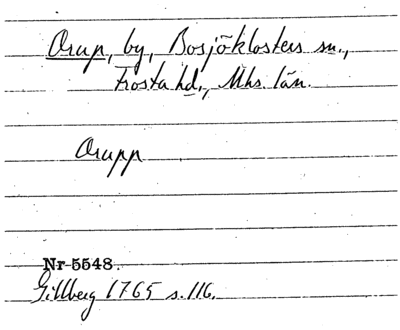 Orup, by, Bosjöklosters sn.,
Frosta hd., Mhs. län.
Orupp
Nr 5548.
Gillberg 1765 s. 116.